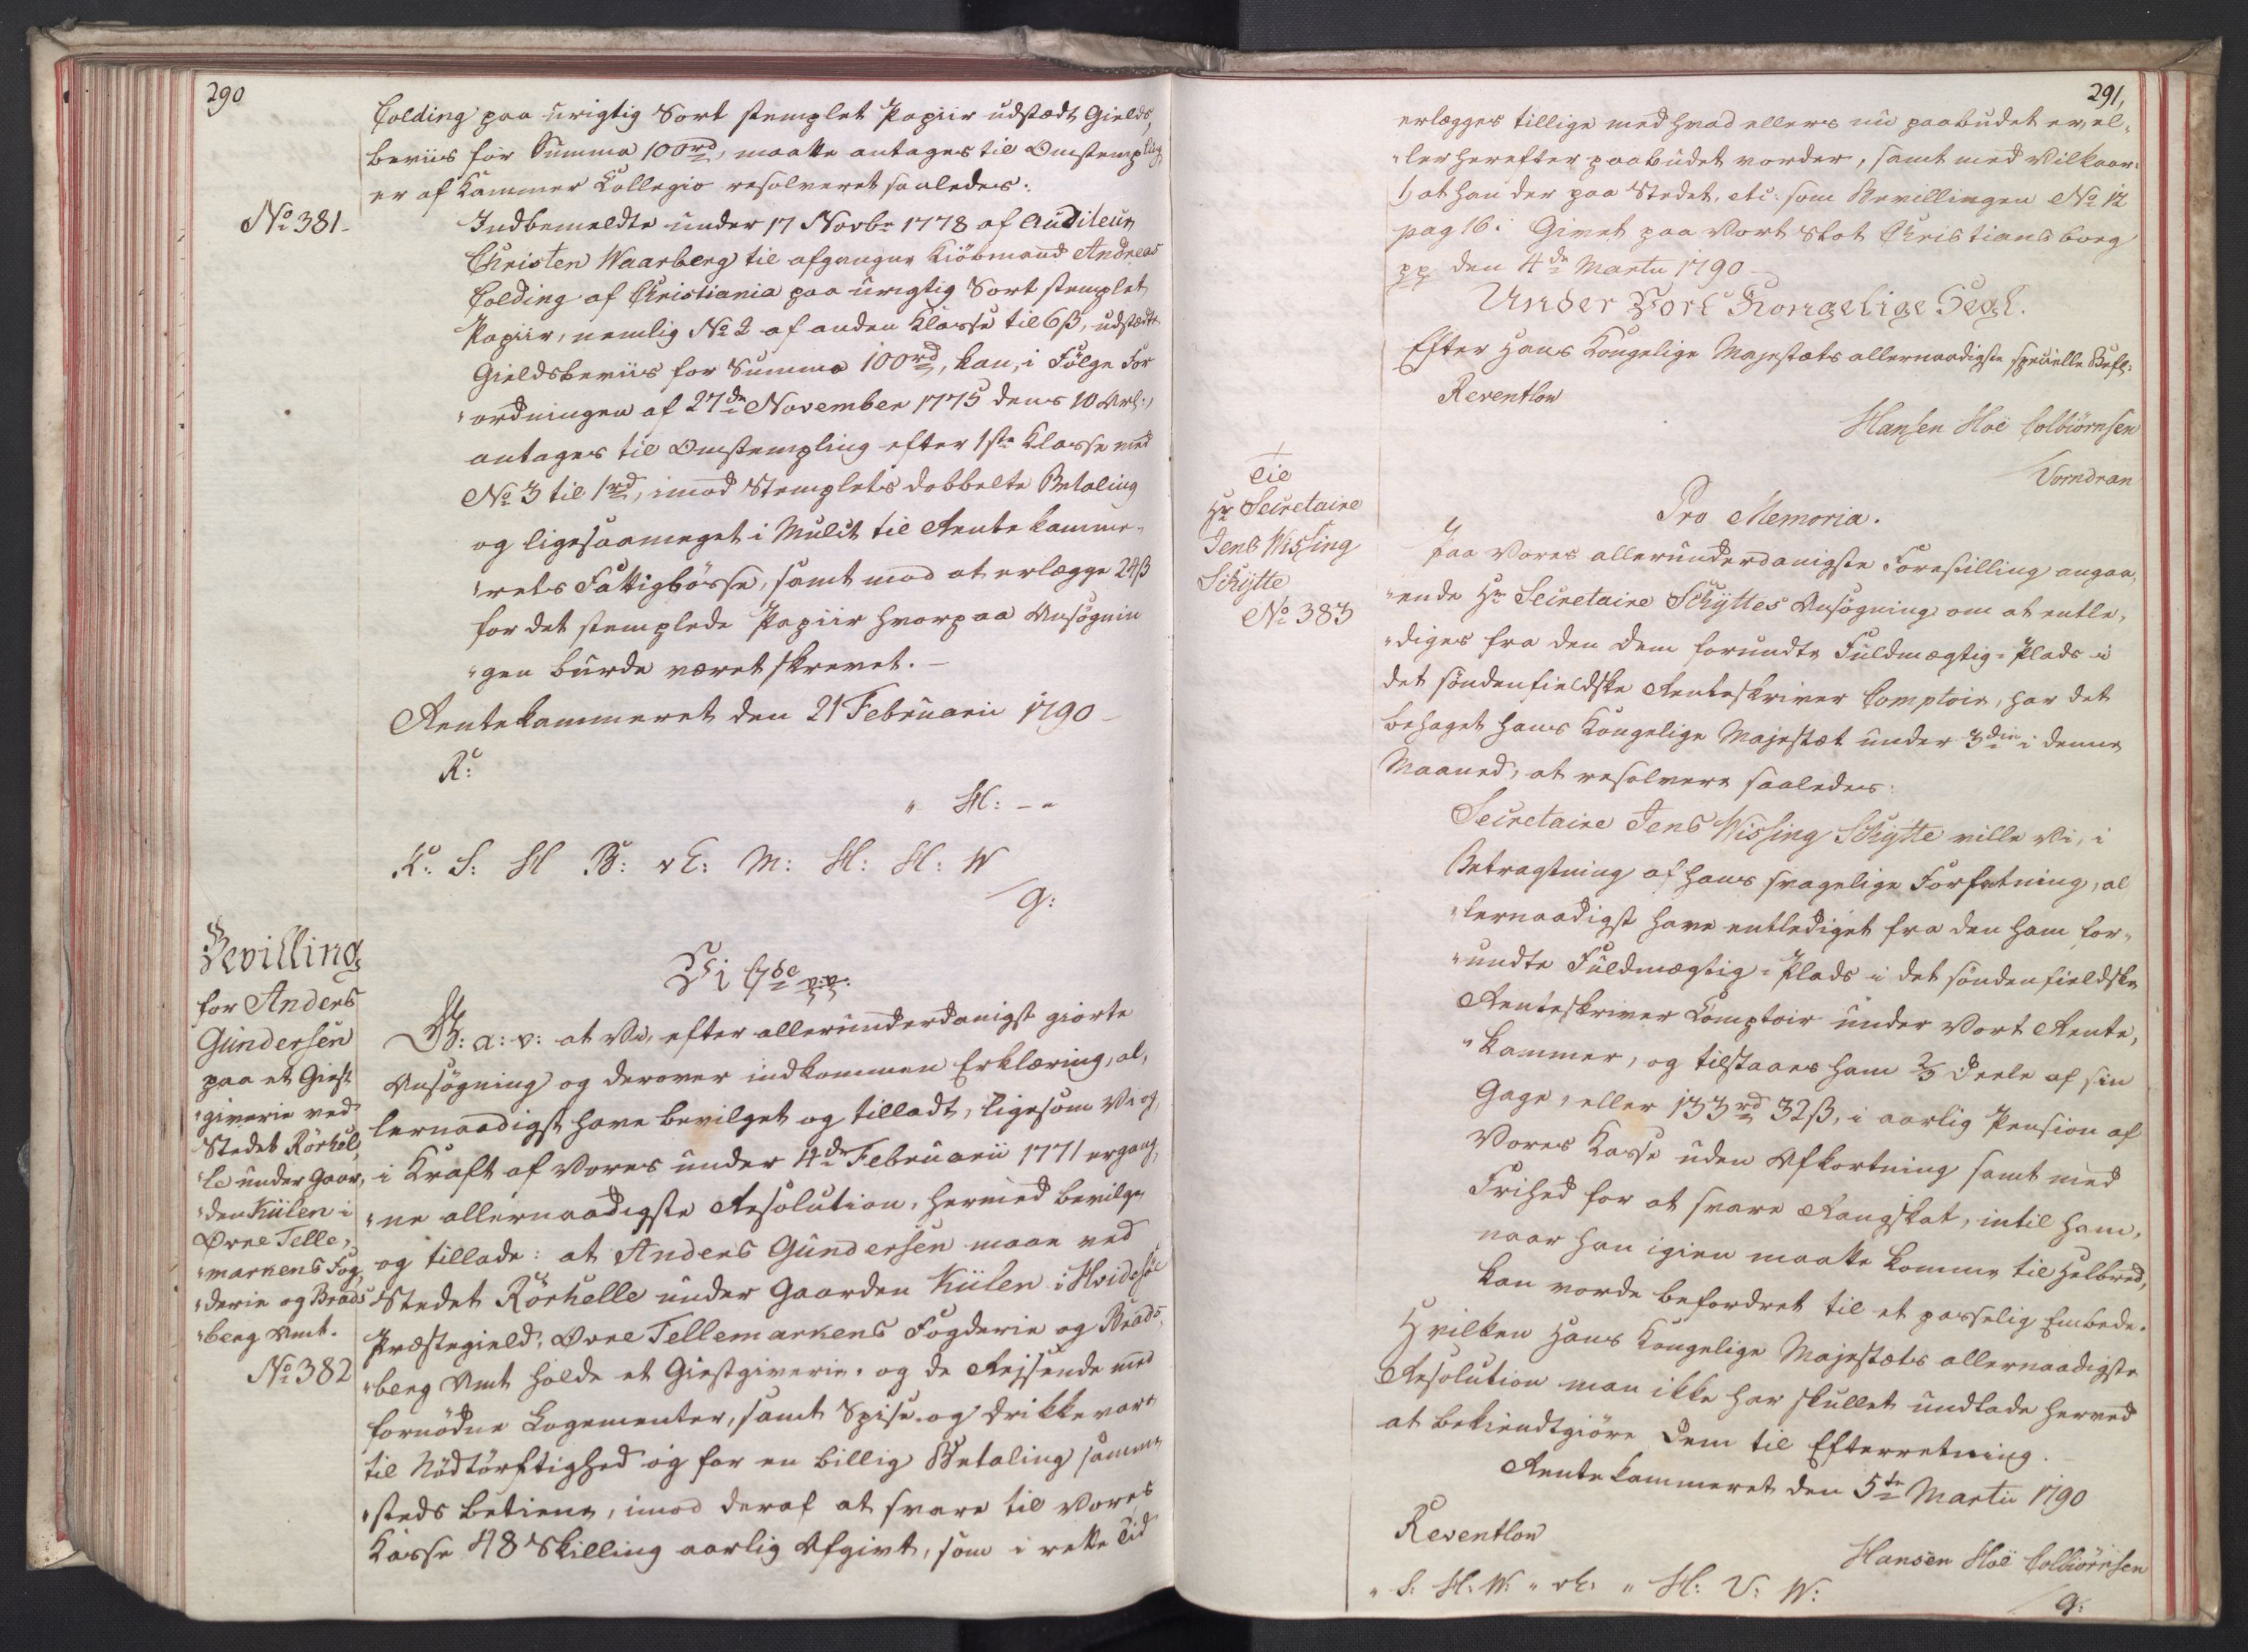 290
Colding paa urigtig Sort stemplet Papiir udstædt Gields,
beviis for Summa 100rd, maatte antages til Omstempling
er af Kammer Collegio resolveret saaledes:
No 381.
Indbemeldte under 17 Novbr 1778 af Auditeur
Christen Waarberg til afgangne Kiöbmand Andreas
Colding af Christiania paa urigtig Sort stemplet
Papiir, nemlig No 2 af anden Klasse til 6ß, udstædte
Gieldsbeviis for Summa 100rd, kan, i Fölge For
"ordningen af 27de November 1775 dens 10 Art:,
antages til Omstempling efter 1ste Klasse med
No 3 til 1rd, imod Stemplets dobbelte Betaling
og ligesaameget i Mulct til Rentekamme-
"rets Fattigbösse, samt mod at erlægge 24ß
for det stemplede Papiir hvorpaa Ansögnin
"gen burde været skrevet. —
Rentekammeret den 21 Februarii 1790 —
R:
" H: — "
K: S: H B: vE: M: H: H: W
G:
Bevilling
for Anders
Gundersen
paa et Giest
"giverie ved
Stedet Rörhel,
"le under Gaar,
"den Kiilen i
Øvre Telle,
"markens Fog,
"derie og Brads
"berg Amt.
No 382
Vi C7de p:p:
G: A: V: at Vi, efter allerunderdanigst giorte
Ansögning og derover indkommen Erklæring, al,
lernaadigst have bevilget og tilladt, ligesom Vi og,
i Kraft af Vores under 4de Februarii 1771 ergang,
"ne allernaadigste Resolution, hermed bevilge
og tillade: at Anders Gundersen maae ved
Stedet Rörhelle under Gaarden Kiilen i Hvidesöe
Præstegield, Øvre Tellemarkens Fogderie og Brads,
"berg Amt holde et Giestgiverie, og de Reisende med
fornödne Logementer, samt Spise- og Drikkevare
til Nödtörftighed og for en billig Betaling samme
"steds betiene, imod deraf at svare til Vores
Kasse 48 Skilling aarlig Afgivt, som i rette Tid
291,
erlægges tillige med hvad ellers nu paabudet er, el,
"ler herefter paabudet vorder, samt med Vilkaar:
1, at han der paa Stedet, etc: som Bevillingen No 12
pag 16. Givet paa Vort Slot Christiansborg
pp den 4de Martii 1790 —
Under Vort Kongelige Segl.
Efter Hans Kongelige Majestæts allernaadigste specielle Befl:
Reventlow
Hansen Hoë Colbiörnsen
Vorndran
Til
Hr Secretaire
Jens Wissing
Schytte
No 383
Pro Memoria.
Paa Vores allerunderdanigste Forestilling angaa,
"ende Hr Secretaire Schyttes Ansögning om at entle,
"diges fra den Dem forundte Fuldmægtig-Plads i
det söndenfieldske Renteskriver Comptoir, har det
behaget Hans Kongelige Majestæt under 3die i denne
Maaned, at resolvere saaledes:
Secretaire Jens Wissing Schytte ville Vi, i
Betragtning af hans svagelige Forfatning, al
"lernaadigst have entlediget fra den ham for-
"undte Fuldmægtig-Plads i det söndenfieldske
Renteskriver Comptoir under Vort Rente,
"kammer, og tilstaaes ham 2/3 Deele af sin
Gage, eller 133rd 32ß, i aarlig Pension af
Vores Kasse uden Afkortning samt med
Frihed for at svare Rangskat, intil ham,
naar han igien maatte komme til Helbred,
kan vorde befordret til et passelig Embede.
Hvilken Hans Kongelige Majestæts allernaadigste
Resolution man ikke har skullet undlade herved
at bekiendtgiöre Dem til Efterretning.
Rentekammeret den 5te Martii 1790
Reventlow
Hansen Hoë Colbiörnsen
" S: H: W: " vE: " H: V: W:
G: